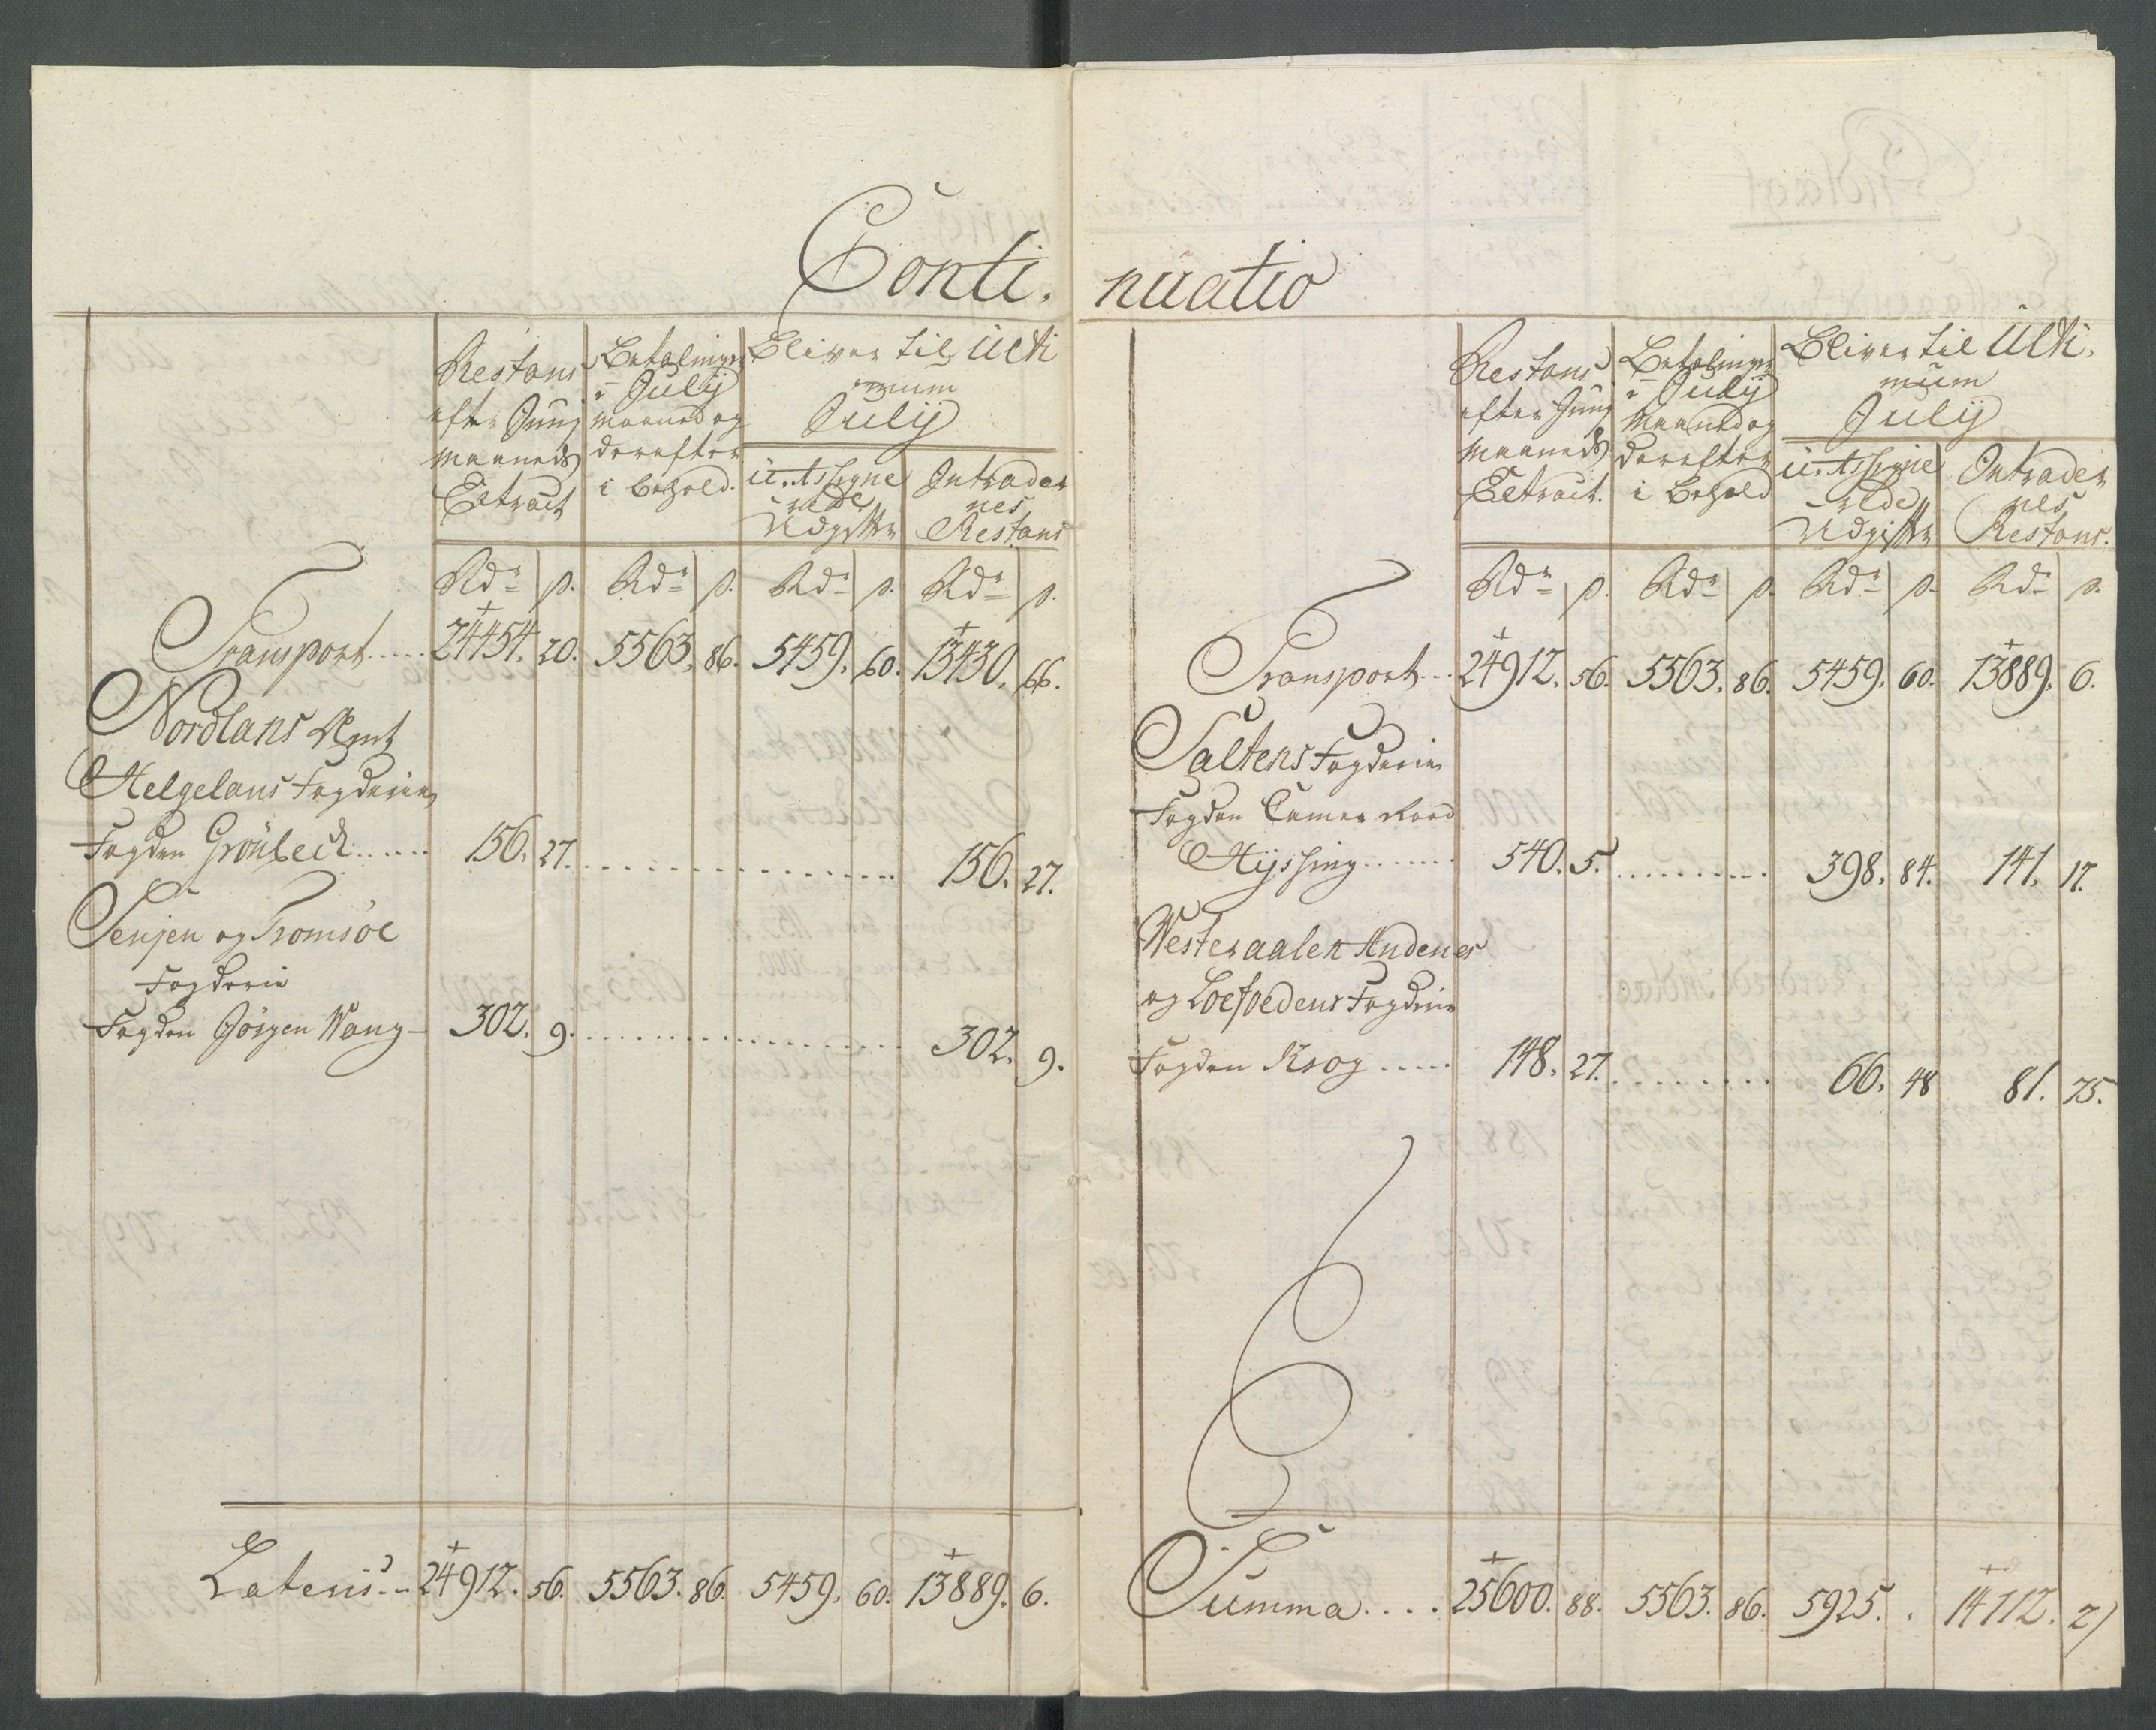 Conti.
Restans
efter Junij
maaneds
Extract
Betalinger
i Julij
maaned og
derefter
i behold.
Bliver til Ulti
mum
Julij
u-Assigne
rede
Udgifter
Intrader
nes
Restans
Rdr ß. Rdr ß. Rdr ß. Rdr ß.
Transport..... 24454. 20. 5563. 86. 5459. 60. 13430. 66.
Nordlans Ampt
Helgelans Fogderie
Fogden Grönbech...... 156. 27. ................ 156. 27.
Senjen og Tromsöe
Fogderie
Fogden Jörgen Wang - 302. 9. ................ 302. 9.
Lateris... 24912. 56. 5563. 86. 5459. 60. 13889. 6.
nuatio
Restans
efter Junij
maaneds
Extract.
Betalinger
i Julij
Maaned og
derefter
i behold
Bliver til Ulti.
mum
Julij
u-Assigne
rede
Udgifter
Intrader
nes
Restans.
Rdr ß. Rdr ß. Rdr ß. Rdr ß.
Transport... 24912. 56. 5563. 86. 5459. 60. 13889. 6.
Saltens Fogderie
Fogden Camer Raad
Hysing....... 540. 5. ......... 398. 84. 141. 17.
Westeraalen Andenes
og Loefoedens Fogderie
Fogden Krog ..... 148. 27. ......... 66. 48 81. 75.
Summa.... 25600. 88. 5563. 86. 5925. . 14112. 2